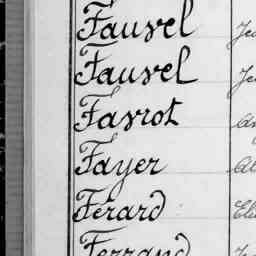 Fauvel
Fauvel
Favrot
Fayer
Férard
Ferrand